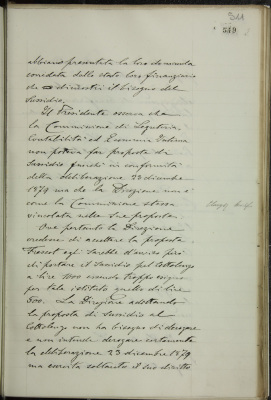 311
319
abbiano presentata la loro domanda
corredata dello stato loro finanziario
che dimostri il bisogno del
Sussidio.
Il Presidente osserva che
la Commissione di Segreteria,
Contabilità ed Economia Interna
non poteva far proposta di
Sussidio fuorchè in conformità
della deliberazione 23 dicembre
1879 ma che la Direzione non è
come la Commissione stessa
vincolata nelle sue proposte.
Ove pertanto la Direzione
credesse di accettare la proposta
Frescot egli sarebbe d'avviso però
di portare il sussidio pel Cottolengo
a lire 1000 essendo troppo esiguo
per tale istituto quello di lire
500. La Direzione adottando
la proposta di sussidio al
Cottolengo non ha bisogno di derogare
e non intende derogare certamente
la deliberazione 23 dicembre 1879
ma esercita soltanto il suo diritto